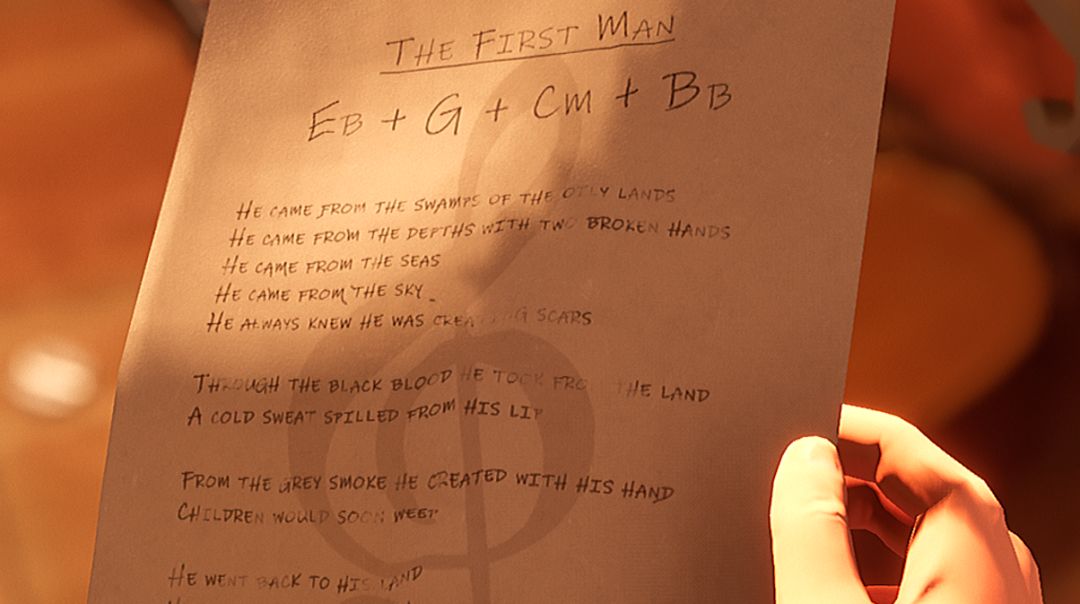 The First Man
Eb + G + Cm + Bb
He came from the swamps of the oily lands
He came from the depths with two broken hands
He came from the seas
He came from the sky
He always knew he was creating scars
Through the black blood he took from the land
A cold sweat spilled from his lip
From the grey smoke he created with his hand
Children would soon weep
He went back to his land